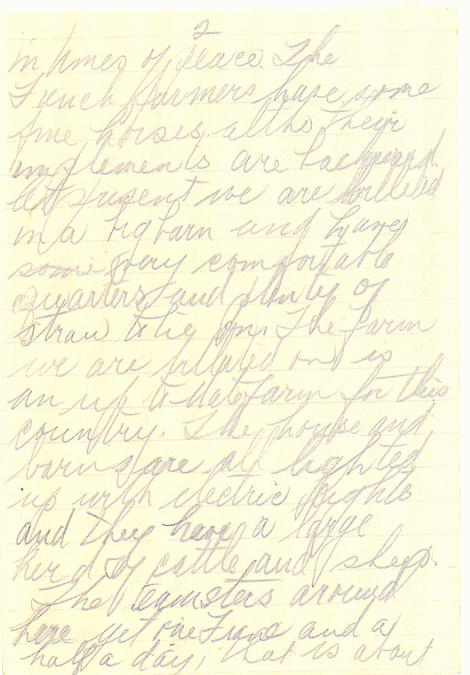 2
in times of peace. The
French farmers have some
fine horses, altho their
implements are backward.
At present we are billeted
in a big barn and have
some very comfortable
quarters and plenty of
straw to lie on. The farm
we are billeted on is
an up to date farm for this
country. The house and
barns are all lighted
up with electric lights
and they have a large
herd of cattle and sheep.
The teamsters around
here get one Franc and a
half a day, that is about